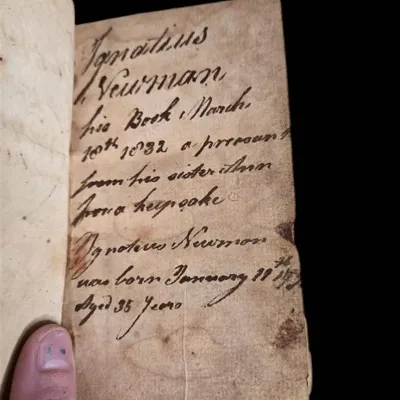 Ignatius
Newman
his Book March
18th 1832 a preasant
from his sister Ann
for a keepsake
Ignateus Newman
was born January
Aged 35 Years